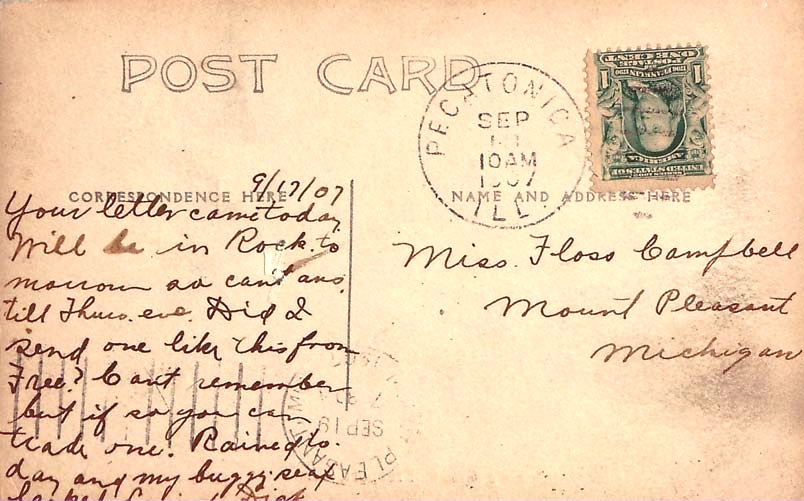 POST CARD
PECATONICA
SEP
10AM
1907
ILL
ONE CENT
POSTAGE
1 1
CORRESPONDENCE HERE
9/17/07
NAME AND ADDRESS HERE
Your letter came today
Will be in Rock. to
morrow so can't ans.
till Thurs. eve. Did I
send one like this from
Free? Cant remember
but if so you can
trade one. Rained to-
day and my buggy seat
Miss. Floss Campbell
Mount Pleasant
Michigan
PLEASANT
SEP 19